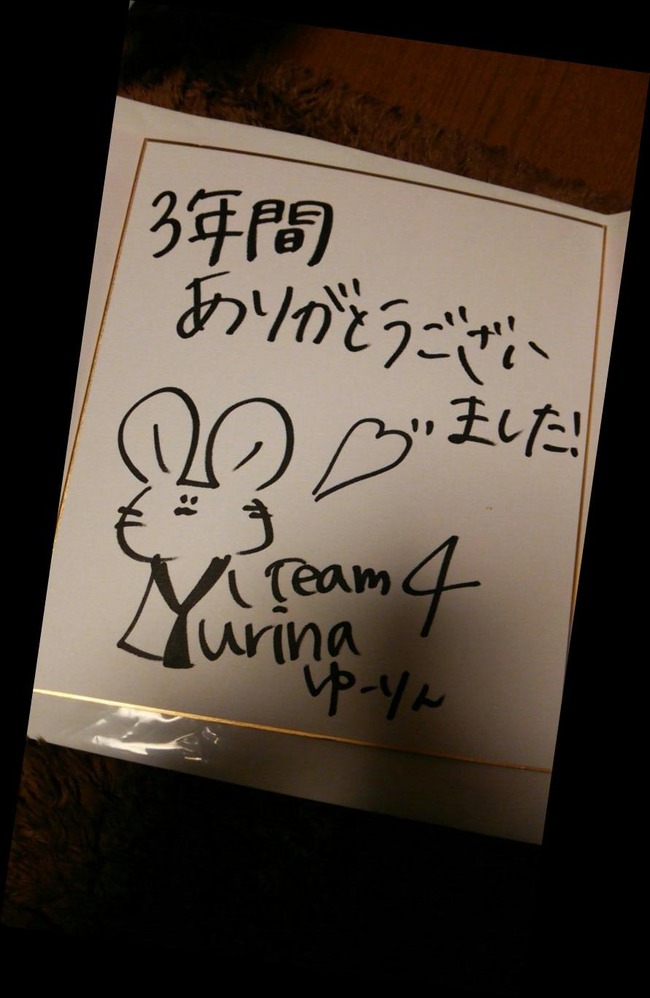 3年間
ありがとうござい
ました!
Team 4
Yurina
ゆーりん